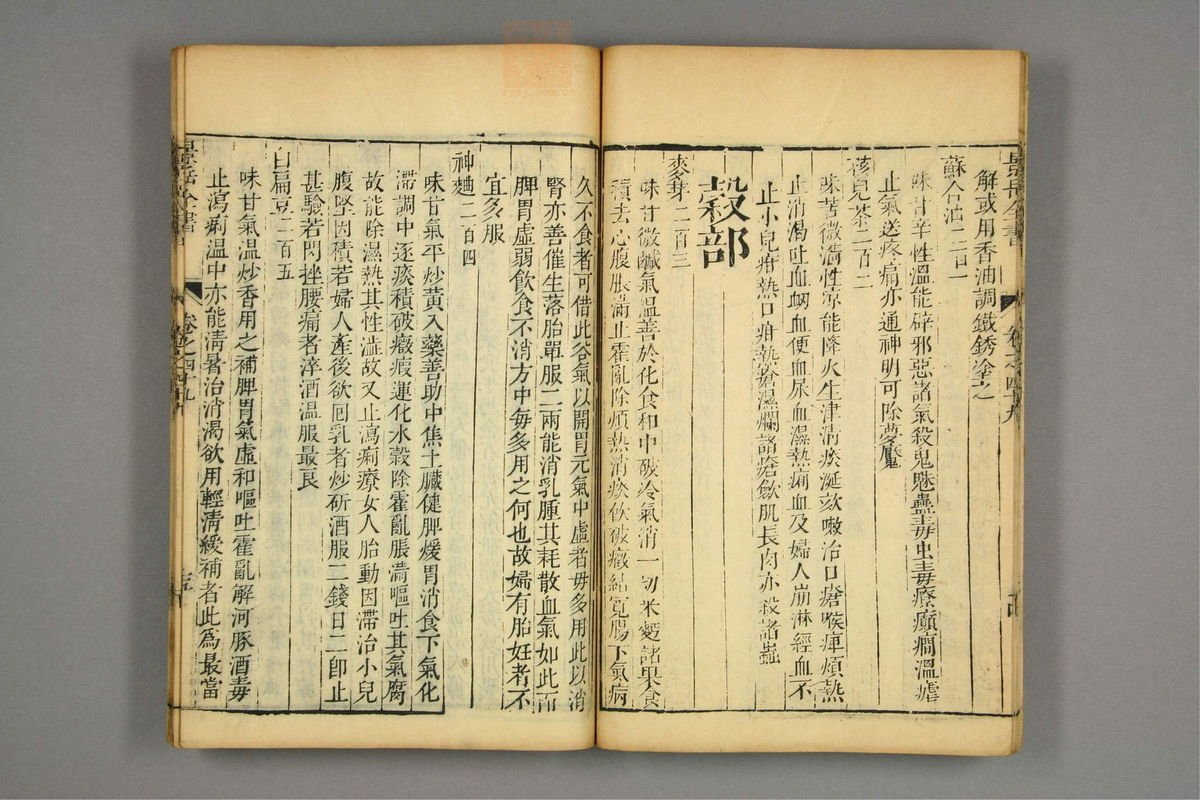 景岳全書
卷之四十九
解或用香油調鐵銹塗之
蘇合油二百一
味甘辛性溫能辟邪惡諸氣殺鬼魅蠱毒虫毒療癲癇溫瘧
止氣逆疼痛亦通神明可除夢魘
孩兒茶二百二
味苦微濇性凉能降火生津清痰涎欬嗽治口瘡喉痺煩熱
止消渴吐血衂血便血尿血濕熱痢血及婦人崩淋經血不
止小兒疳熱口疳熱瘡濕爛諸瘡斂肌長肉亦殺諸蟲
穀部
麥芽二百三
味甘微鹹氣溫善於化食和中破冷氣消一切米麪諸果食
積去心腹脹滿止霍亂除煩熱消痰飲破癥結寛腸下氣病
久不食者可借此谷氣以開胃元氣中虛者毋多用此以消
腎亦善催生落胎單服二兩能消乳腫其耗散血氣如此而
脾胃虛弱飲食不消方中每多用之何也故婦有胎妊者不
宜多服
神麯二百四
味甘氣平炒黃入藥善助中焦土臟健脾煖胃消食下氣化
滯調中逐痰積破癥瘕運化水穀除霍亂脹滿嘔吐其氣腐
故能除濕熱其性澁故又止瀉痢療女人胎動因滯治小兒
腹堅因積若婦人產後欲回乳者炒研酒服二錢日二卽止
甚驗若閃挫腰痛者淬酒温服最良
白扁豆二百五
味甘氣温炒香用之補脾胃氣虛和嘔吐霍亂解河豚酒毒
止瀉痢温中亦能清暑治消渴欲用輕清緩補者此為最當
景岳全書
卷之四十九